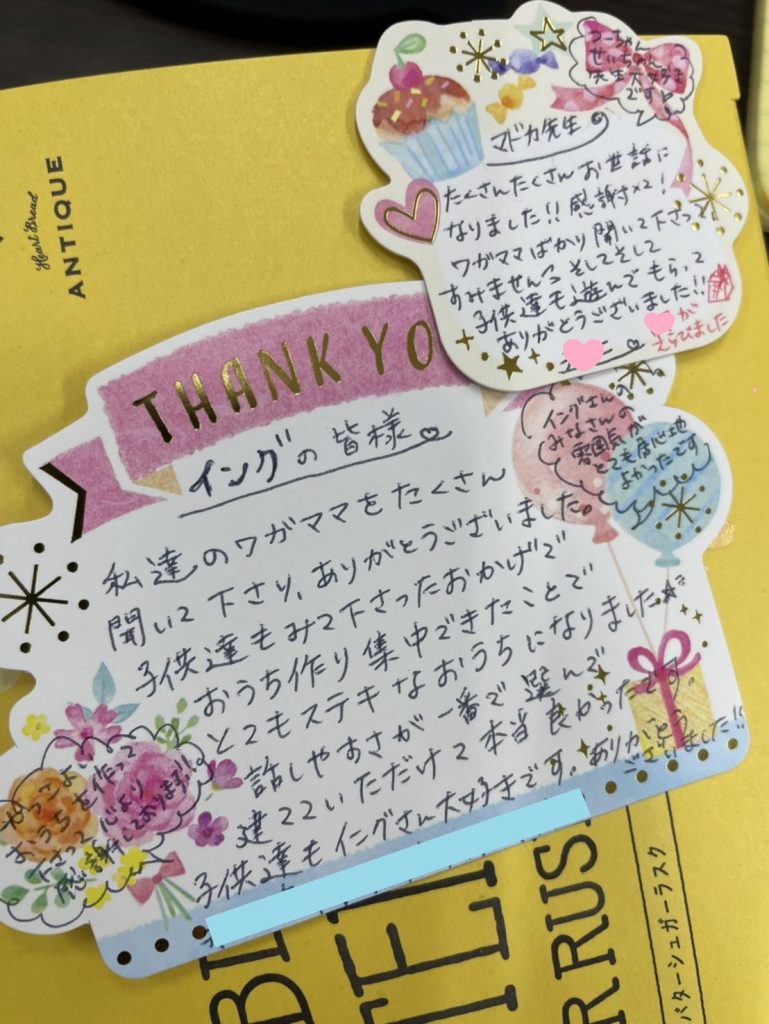 Heart Bread
ANTIQUE
つーちゃん
せいちゃん
先生大好き
です
マドカ先生
たくさんたくさん お世話に
なりました!! 感謝×2!
ワガママばかり聞いて下さって、
すみません そしてそして
子供達も遊んでもらって
ありがとうございました!!
が
えらびました
THANK YO
イングの 皆様
私達のワガママをたくさん
聞いて下さり、ありがとうございました。
子供達もみて下さったおかげで
おうち作り集中できたことで
とてもステキなおうちになりました
話しやすさが一番で選んで
建てていただけて本当良かったです。
子供達もイングさん大好きです。ありがとう
ございました!!
イングさんの
みなさんの
雰囲気が
とても居心地
よかったです
かっこよい
おうちを作って
下さって心より
感謝しております!!
R RUS
バターシュガーラスク